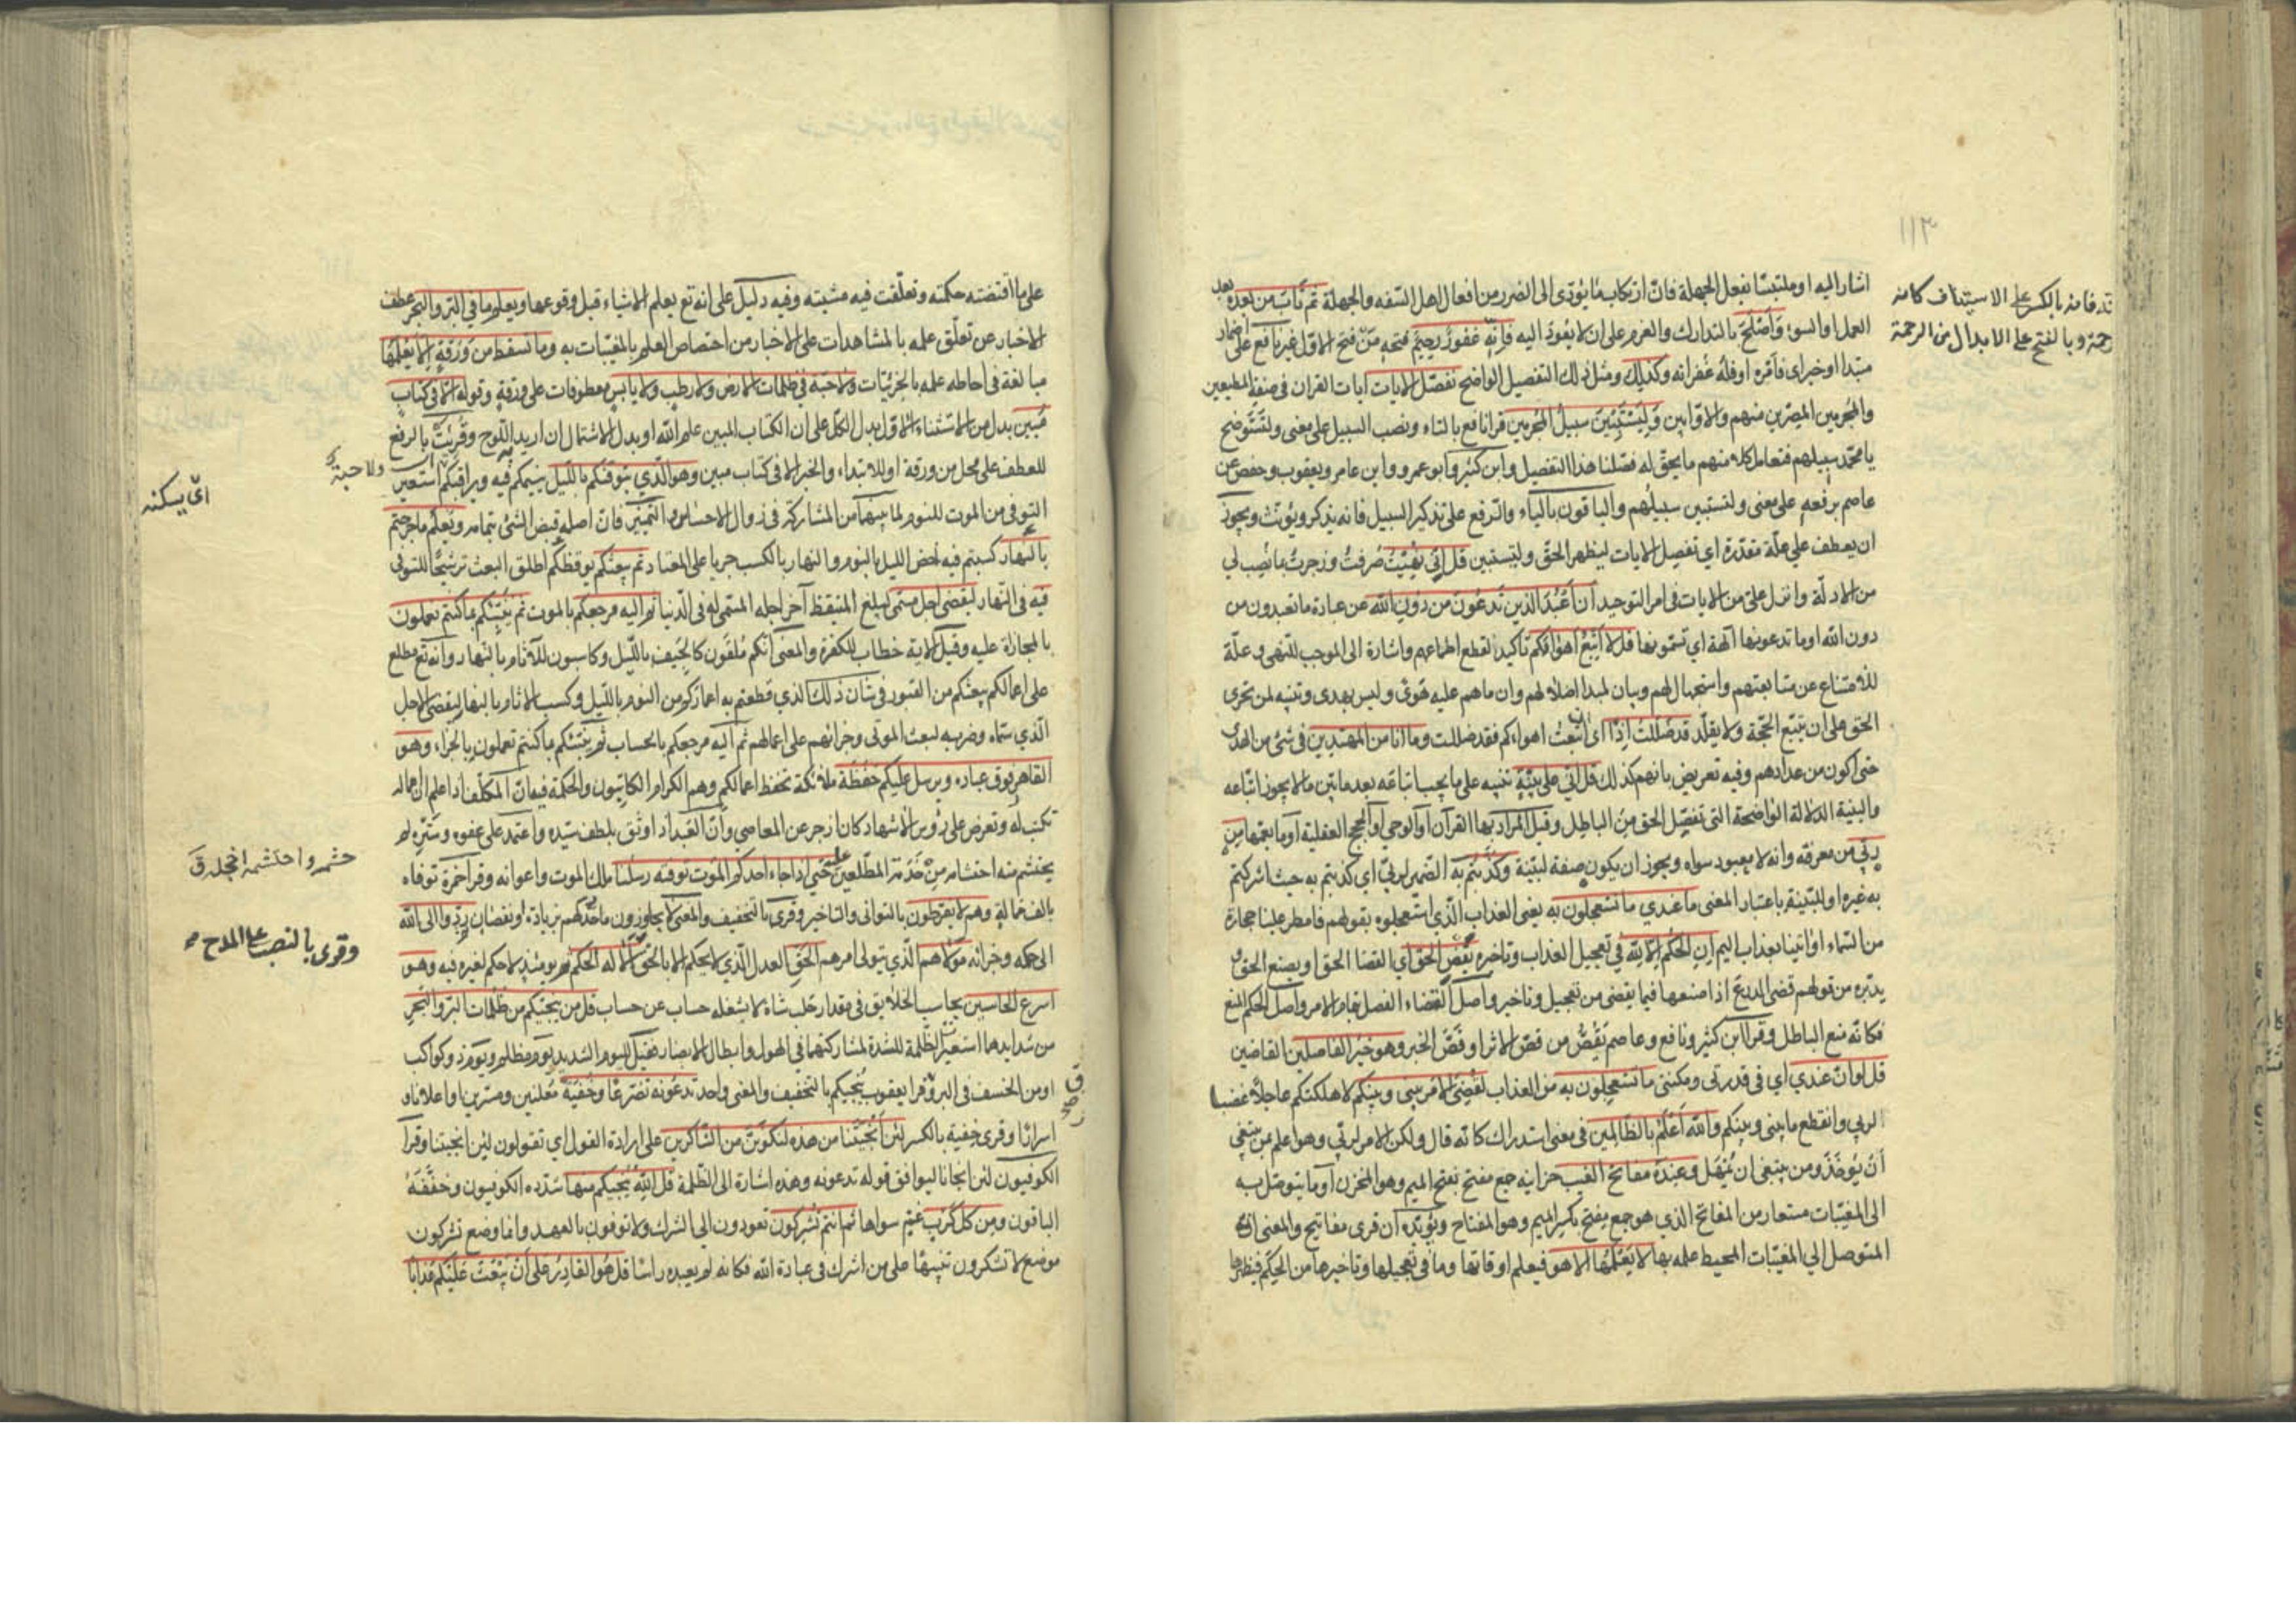 ١١٣
اشار اليه او ملتبسا بفعل الجهلة فانّ ارتكاب ما يؤدى الى الضرر من افعال اهل السّفه والجهلة ثم تاب من بعده بعد
العمل او السوء واصلح بالتدارك والعزم على ان لا يعود اليه فانّه غفور رحيم فتحه من فتح الاوّل غير نافع على اضمار
مبتدا او خبر اى فامره او فله غفرانه وكذلك ومثل ذلك التفصيل الواضح نفصّل الايات ايات القران فى صفة المطيعين
والمجرمين المصرّين منهم والاوّابين وليستبين سبيل المجرمين قرا نافع بالتاء ونصب السبيل على معنى ولتستوضح
يا محمّد سبيلهم فتعامل كلا منهم بما يحقّ له فصّلنا هذا التفصيل وابن كثير وابو عمرو وابن عامر ويعقوب وحفص عن
عاصم برفعه على معنى ولتستبين سبيلهم والباقون بالياء والرفع على تذكير السبيل فانه يذكر ويؤنث ويجوز
ان يعطف على علّة مقدّرة اي نفصل الايات ليظهر الحقّ وليستبين قل انّي نهيت صُرفت وزجرت بما نُصب لي
من الادلّة وانزل علىّ من الايات في امر التوحيد أن أعبد الذين تدعون من دون الله عن عبادة ما تعبدون من
دون الله او ما تدعونها آلهة اي تسمّونها قل لا أتّبع أهواءكم تأكيد لقطع اطماعهم واشارة الى الموجب للنهى وعلّة
للامتناع عن متابعتهم واستجهال لهم وبيان لمبدا ضلالهم وان ما هم عليه هوىً وليس بهدى وتنبيه لمن تحرى
الحق على ان يتبّع الحجّة ولا يقلّد قد ضللت إذًا اى ان اتّبعت اهواءكم فقد ضللت وما أنا من المهتدين فى شئ من الهدى
حتى اكون من عدادهم وفيه تعريض بانهم كذلك قل انّي على بيّنة تنبيه على ما يجب اتباعه بعد ما بيّن ما لا يجوز اتباعه
والبينة الدلالة الواضحة التى تفصل الحق من الباطل وقيل المراد بها القرآن او الوحى او الحجج العقلية او ما يعمّها من
ربّي من معرفته وانه لا معبود سواه ويجوز ان يكون صفة لبيّنة وكذّبتم به الضمير لربّى اي كذبتم به حيث اشركتم
به غيره او للبيّنة باعتبار المعنى ما عندي ما تستعجلون به يعنى العذاب الّذي استعجلوه بقولهم فامطر علينا حجارة
من السّماء او ائتنا بعذاب اليم ان الحكم الا لله في تعجيل العذاب وتاخيره يقض الحق اي القضا الحق او يصنع الحق و
يدبّره من قولهم قضى الدرع اذا صنعها فيما يقضى من تعجيل وتاخير واصل القضاء الفصل بتمام الامر واصل الحكم المنع
فكانّه منع الباطل وقرا ابن كثير ونافع وعاصم يقصّ من قصّ الاثر او قصّ الخبر وهو خير الفاصلين القاضين
قل لو انّ عندي اي في قدرتى ومكنتى ما تستعجلون به من العذاب لقضى الامر بينى وبينكم لاهلكتكم عاجلا غضبا
لربي وانقطع ما بينى وبينكم والله اعلم بالظالمين في معنى استدراك كانّه قال ولكن الامر لربّي وهو اعلم بمن ينبغي
أن يؤخذ ومن ينبغى ان يُمهل وعنده مفاتح الغيب خزاينه جمع مفتح بفتح الميم وهو المخزن او ما يتوصل به
الى المغيّبات مستعار من المفاتح الذي هو جمع مفتح بكسر الميم وهو المفتاح ويؤيّده ان قرى مفاتيح والمعنى انّه
المتوصل الي المغيّبات المحيط علمه بها لا يعلمها الا هو فيعلم اوقاتها وما في تعجيلها وتاخيرها من الحِكَم فيظهرها
بالكسر على الاستيناف كانه
رحمة وبالفتح على الابدال من الرحمة
على ما اقتضته حكمته وتعلّقت فيه مشيته وفيه دليل على انه تع يعلم الاشياء قبل وقوعها ويعلم ما في البرّ والبحر عطف
الاخبار عن تعلّق علمه بالمشاهدات على الاخبار من اختصاص العلم بالمغيّبات به وما تسقط من ورقة الا يعلمها
مبالغة فى احاطه علمه بالجزئيات ولا حبّة في ظلمات الارض ولا رطب ولا يابس معطوفات على ورقةٍ وقوله الّا في كتاب
مّبين بدل من الاستثناء الاوّل بدل الكلّ على ان الكتاب المبين علم الله او بدل الاشتمال ان اريد به اللّوح وقُريت بالرفع
للعطف على محل من ورقة او للابتداء والخبر الا فى كتاب مبين وهو الّذي يتوفّيكم بالليل ينيمكم فيه ويراقبكم استعير
التوفى من الموت للنوم لما بينهما من المشاركة فى زوال الاحساس والتمييز فانّ اصله قبض الشئ بتمامه ويعلم ما جرحتم
بالنهار كسبتم فيه خصّ الليل بالنوم والنهار بالكسب جريا على المعتاد ثم يبعثكم يوقظكم اطلق البعث ترشيحًا للتوفى
فيه فى النّهار ليقضى اجل مسمّى ليبلغ المتيقظ آخر اجله المسمّى له فى الدّنيا ثم اليه مرجعكم بالموت ثم ينبّئكم بما كنتم تعملون
بالمجازاة عليه وقيل الاية خطاب للكفرة والمعنى انّكم مُلقَون كالجيف بالليل وكاسبون للآثام بالنهار وانه تع مطلع
على اعمالكم يبعثكم من القبور فى شان ذلك الذي قطعتم به اعماركم من النوم بالليل وكسب الاثام بالنهار ليقضى الاجل
الّذي سمّاه وضربه لبعث الموتى وجزائهم على اعمالهم ثم اليه مرجعكم بالحساب ثم ينبّئكم بما كنتم تعملون بالجزاء وهو
القاهر فوق عباده ويرسل عليكم حفظة ملائكة تحفظ اعمالكم وهم الكرام الكاتبون والحكمة فيه انّ المكلّف اذا علم ان اعماله
تكتب له وتعرض على رؤس الاشهاد كان ازجر عن المعاصي وانّ العبد اذا وثق بلطف سيّده واعتمد على عفوه وستره لم
يحتشم منه احتشامه من خَدَمه المطّلعين عليه حتى اذا جاء احدكم الموت توفته رسلنا ملك الموت واعوانه وقرا حمزة توفاه
بالف ممالة وهم لا يفرّطون بالتوانى والتاخير وقرى بالتخفيف والمعنى لا يجاوزون ما حُدّ لهم بزيادة او نقصان ثم ردّوا الى الله
الى حكمه وجزائه مولاهم الّذي يتولى امرهم الحق العدل الّذي لا يحكم الا بالحق الا له الحكم يومئذ لا حكم لغيره فيه وهو
اسرع الحاسبين يحاسب الخلايق فى مقدار حلب شاة لا يشغله حساب عن حساب قل من ينجّيكم من ظلمات البرّ والبحر
من شدايدهما استعيرت الظّلمة للشدة لمشاركتهما فى الهول وابطال الابصار فقيل لليوم الشديد يوم مظلم ويوم ذو كواكب
او من الخسف فى البرّ وقرا يعقوب يُنجيكم بالتخفيف والمعنى واحد تدعونه تضرّعًا وخُفية معلنين ومسترين او اعلانا و
اسرارًا وقرى خِفية بالكسر لئن أنجيتنا من هذه لنكوننّ من الشّاكرين على ارادة القول اي تقولون لئن انجيتنا وقرا
الكوفيون لئن انجانا ليوافق قوله تدعونه وهذه اشارة الى الظّلمة قل الله ينجّيكم منها شدّده الكوفيون وخفّفه
الباقون ومن كل كرب غمّ سواها ثم انتم تشركون تعودون الي الشرك ولا توفون بالعهد وانما وضع تشركون
موضع لا تشكرون تنبيهًا على من اشرك فى عبادة الله فكانه لم يعبده راسًا قل هو القادر على أن يبعث عليكم عذابًا
ولا حبة
اى يسكنه
وقرى بالنصب على المدح